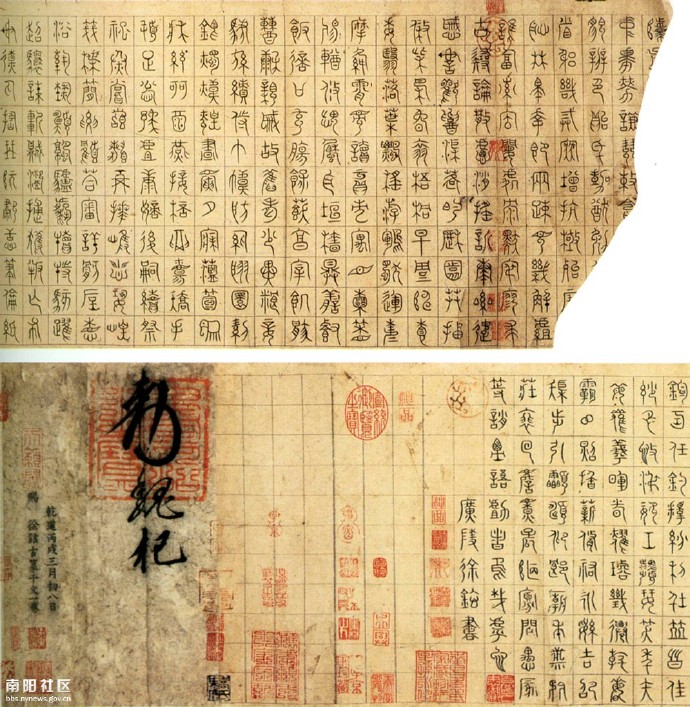 陟孟
中庸勞謙謹敕聆
貌辨色貽厥嘉猷勉
省躬譏誡寵增抗極殆辱
恥林皋幸即兩疏見機解組
誰逼索居閑處沉默寂寥求
古尋論散慮逍遙欣奏累遣
慼謝歡招渠荷的歷園莽抽
條枇杷晚翠梧桐早凋陳根
委翳落葉飄颻遊鵾獨運凌
摩絳霄耽讀翫市寓目囊箱
易輶攸畏屬耳垣牆具膳餐
飯適口充腸飽飫烹宰饑厭
糟糠親戚故舊老少異糧妾
御績紡侍巾帷房紈扇圓潔
銀燭煒煌晝眠夕寐藍筍象
牀絃歌酒讌接杯舉觴矯手
頓足悅豫且康嫡後嗣續祭
祀烝嘗稽顙再拜悚懼恐惶
牋牒簡要顧答審詳骸垢想
浴執熱願涼驢騾犢特駭躍
超驤誅斬賊盜捕獲叛亡布
射遼丸嵇琴阮嘯恬筆倫紙
鈞巧任釣釋紛利俗並皆佳
妙毛施淑姿工顰妍笑年矢
每催羲暉朗曜璇璣懸斡晦
魄環照指薪修祜永綏吉劭
矩步引領俯仰廊廟束帶矜
莊徘徊瞻眺孤陋寡聞愚蒙
等誚謂語助者焉哉乎也
廣陵徐鉉書
勅魏杞
乾道丙戌三月初八日
賜 徐鉉古篆千文一卷
南阳社区
bbs.nynews.gov.cn